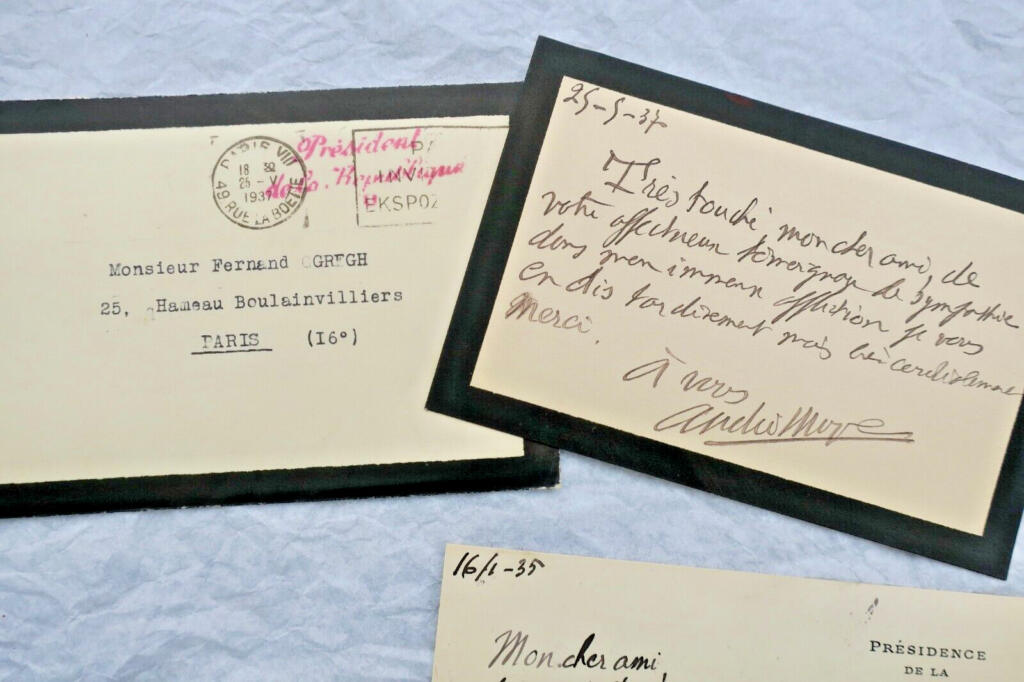 PARIS VIII
18 30
25 - V
1937
49 RUE LA BOETIE
Président
de la République
EKSPOZ
Monsieur Fernand GREGH
25, Hameau Boulainvilliers
PARIS (16°)
25-5-37
Très touché, mon cher ami, de
votre affectueux témoignage de sympathie
dans mon immense affliction je vous
en dis tardivement mais très cordialement
Merci.
À vous
16/1-35
Mon cher ami
PRÉSIDENCE
DE LA